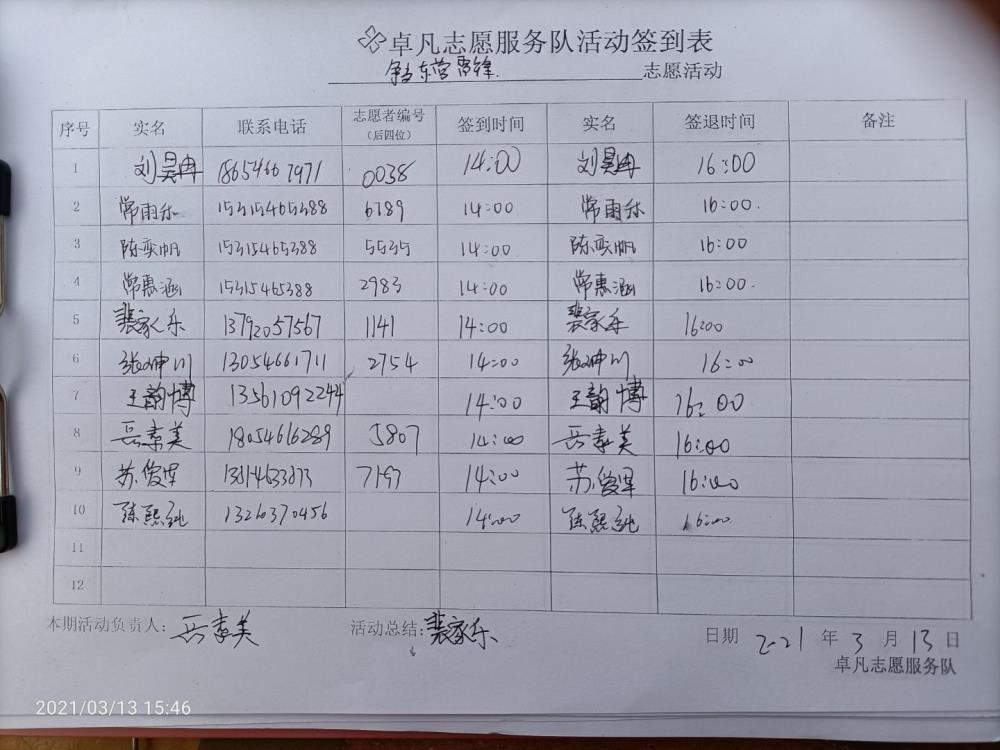 卓凡志愿服务队活动签到表
争当东营雷锋 志愿活动
序号 实名 联系电话 志愿者编号（后四位） 签到时间 实名 签退时间 备注
1 刘昊冉 18654667971 0038 14:00 刘昊冉 16:00
2 常雨乐 15315465388 6789 14:00 常雨乐 16:00.
3 陈奕帆 15315465388 5535 14:00 陈奕帆 16:00
4 常惠涵 15315465388 2983 14:00 常惠涵 16:00.
5 裴家乐 13792057567 1141 14:00 裴家乐 16:00
6 张坤川 13054661711 2754 14:00 张坤川 16:00
7 王韵博 13561092244 14:00 王韵博 16:00
8 岳素美 18054616289 5807 14:00 岳素美 16:00
9 苏俊星 7197 14:00 苏俊星 16:00
10 陈熙 13260370456 14:00 陈熙 16:00
11
12
本期活动负责人：岳素美 活动总结：裴家乐 日期 2021 年 3 月 13 日
卓凡志愿服务队
2021/03/13 15:46